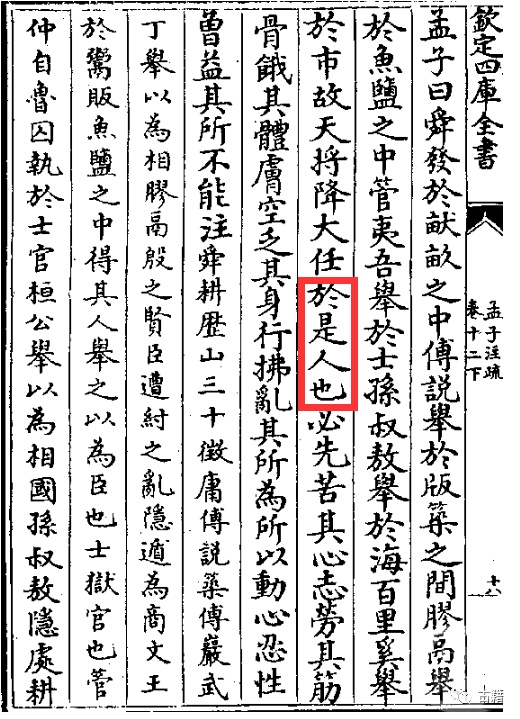 欽定四庫全書
孟子注疏
卷十二下
十八
孟子曰舜發於畎畝之中傅説舉於版築之間膠鬲舉
於魚鹽之中管夷吾舉於士孫叔敖舉於海百里奚舉
於市故天將降大任於是人也必先苦其心志勞其筋
骨餓其體膚空乏其身行拂亂其所為所以動心忍性
曽益其所不能注舜耕歴山三十徵庸傅説築傅巖武
丁舉以為相膠鬲殷之賢臣遭紂之亂隱遁為商文王
於鬻販魚鹽之中得其人舉之以為臣也士獄官也管
仲自魯囚執於士官桓公舉以為相國孫叔敖隱處耕
古籍